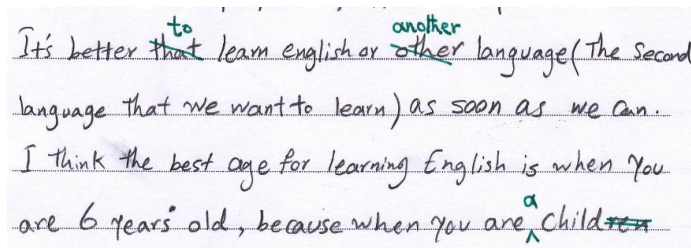 It's better that to learn english or other another language (The second
language that we want to learn) as soon as we can.
I think the best age for learning English is when you
are 6 years old, because when you are a children